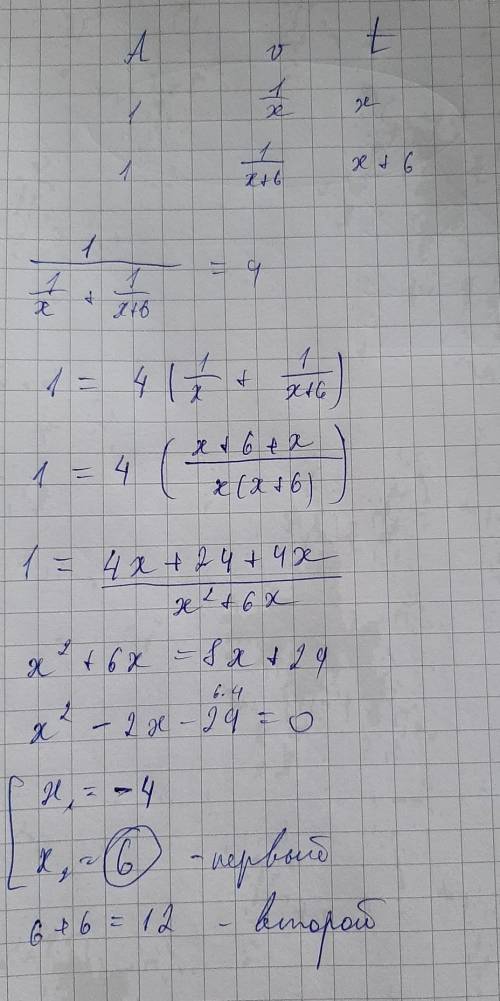 A v t
1 1/x x
1 1/(x+6) x+6
1/(1/x + 1/(x+6)) = 4
1 = 4 (1/x + 1/(x+6))
1 = 4 ((x+6+x)/(x(x+6)))
1 = (4x+24+4x)/(x²+6x)
x² + 6x = 8x + 24
6·4
x² - 2x - 24 = 0
[ x₁ = -4
x₂ = 6 - первый
6+6 = 12 - второй